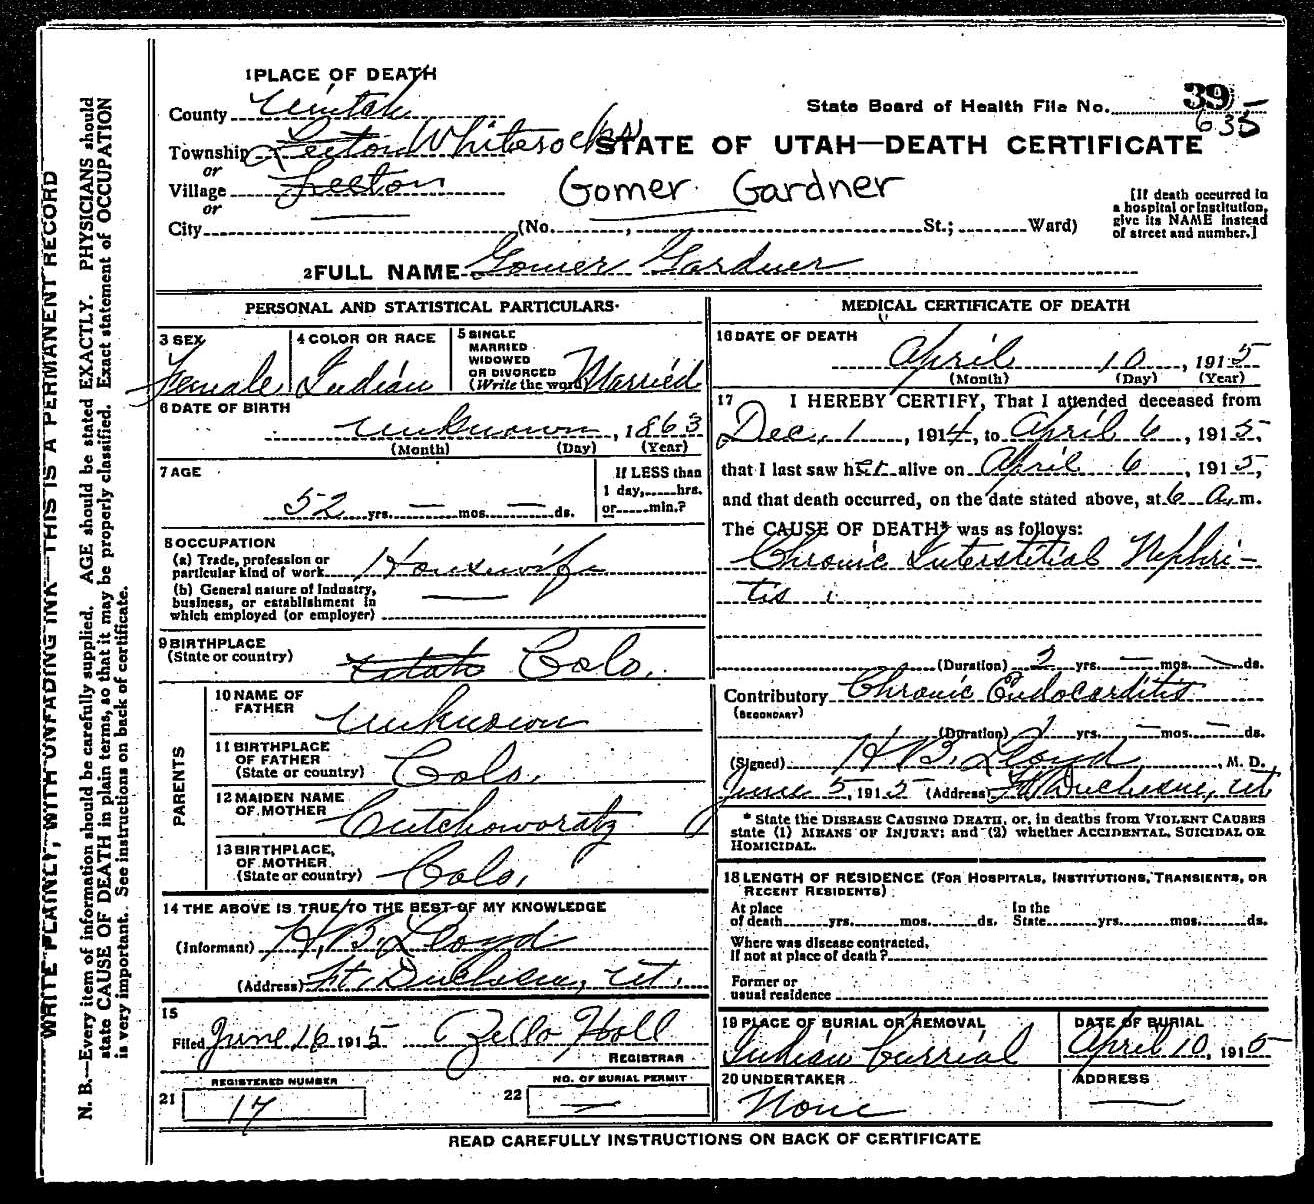 1 PLACE OF DEATH
County Uintah
State Board of Health File No. 39
635
Township Leeton Whiterocks
STATE OF UTAH—DEATH CERTIFICATE
or
Village Leeton
Gomer Gardner
or
City (No. , St.; Ward)
[If death occurred in
a hospital or institution,
give its NAME instead
of street and number.]
2 FULL NAME Gomer Gardner
PERSONAL AND STATISTICAL PARTICULARS
3 SEX
Female
4 COLOR OR RACE
Indian
5 SINGLE
MARRIED
WIDOWED
OR DIVORCED
(Write the word) Married
6 DATE OF BIRTH
unknown, 1863
(Month) (Day) (Year)
7 AGE
52 yrs. — mos. — ds.
If LESS than
1 day, hrs.
or min.?
8 OCCUPATION
(a) Trade, profession or
particular kind of work Housewife
(b) General nature of Industry,
business, or establishment in
which employed (or employer) —
9 BIRTHPLACE
(State or country) Colo.
PARENTS
10 NAME OF
FATHER unknown
11 BIRTHPLACE
OF FATHER
(State or country) Colo.
12 MAIDEN NAME
OF MOTHER Cutchoworatz
13 BIRTHPLACE,
OF MOTHER
(State or country) Colo.
14 THE ABOVE IS TRUE TO THE BEST OF MY KNOWLEDGE
(Informant) H.B. Lloyd
(Address) Ft. Duchesne, Ut.
15
Filed June 16 1915 Zello Holl
REGISTRAR
REGISTERED NUMBER
21 17
NO. OF BURIAL PERMIT
22 —
MEDICAL CERTIFICATE OF DEATH
16 DATE OF DEATH
April 10, 1915
(Month) (Day) (Year)
17 I HEREBY CERTIFY, That I attended deceased from
Dec. 1, 1914, to April 6, 1915,
that I last saw her alive on April 6, 1915,
and that death occurred, on the date stated above, at 6 a.m.
The CAUSE OF DEATH* was as follows:
Chronic Interstitial Nephri-
tis
(Duration) 2 yrs. — mos. — ds.
Contributory Chronic Endocarditis
(SECONDARY)
(Duration) yrs. — mos. — ds.
(Signed) H B. Lloyd, M. D.
June 5, 1915 (Address) Ft Duchesne, Ut
* State the DISEASE CAUSING DEATH, or, in deaths from VIOLENT CAUSES
state (1) MEANS OF INJURY; and (2) whether ACCIDENTAL, SUICIDAL OR
HOMICIDAL.
18 LENGTH OF RESIDENCE (FOR HOSPITALS, INSTITUTIONS, TRANSIENTS, OR
RECENT RESIDENTS)
At place In the
of death yrs. mos. ds. State yrs. mos. ds.
Where was disease contracted,
If not at place of death?
Former or
usual residence
19 PLACE OF BURIAL OR REMOVAL
Indian burrial
DATE OF BURIAL
April 10, 1915
20 UNDERTAKER
None
ADDRESS
—
READ CAREFULLY INSTRUCTIONS ON BACK OF CERTIFICATE
WRITE PLAINLY, WITH UNFADING INK—THIS IS A PERMANENT RECORD
N. B.—Every item of information should be carefully supplied. AGE should be stated EXACTLY. PHYSICIANS should
state CAUSE OF DEATH in plain terms, so that it may be properly classified. Exact statement of OCCUPATION
is very important. See instructions on back of certificate.